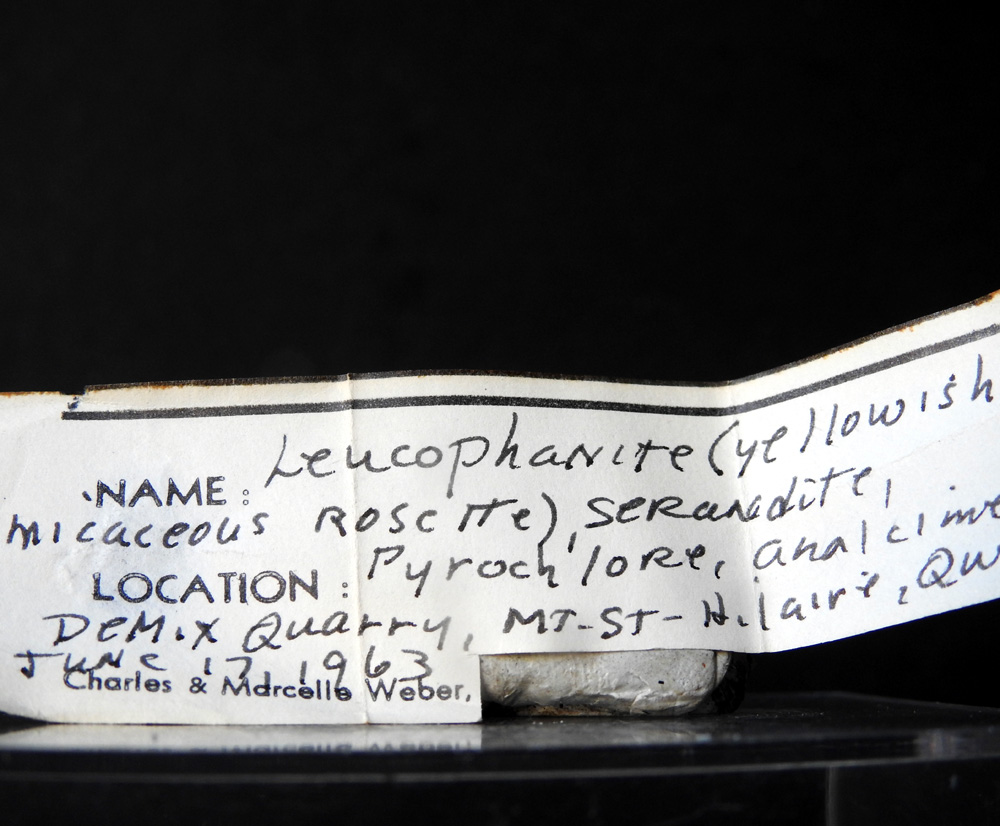 NAME: Leucophanite (yellowish
micaceous Rosette), serandite,
Pyrochlore, analcime
LOCATION:
DEMIX Quarry, MT-ST-Hilaire, Qu
JUNE 17 1963
Charles & Marcelle Weber,